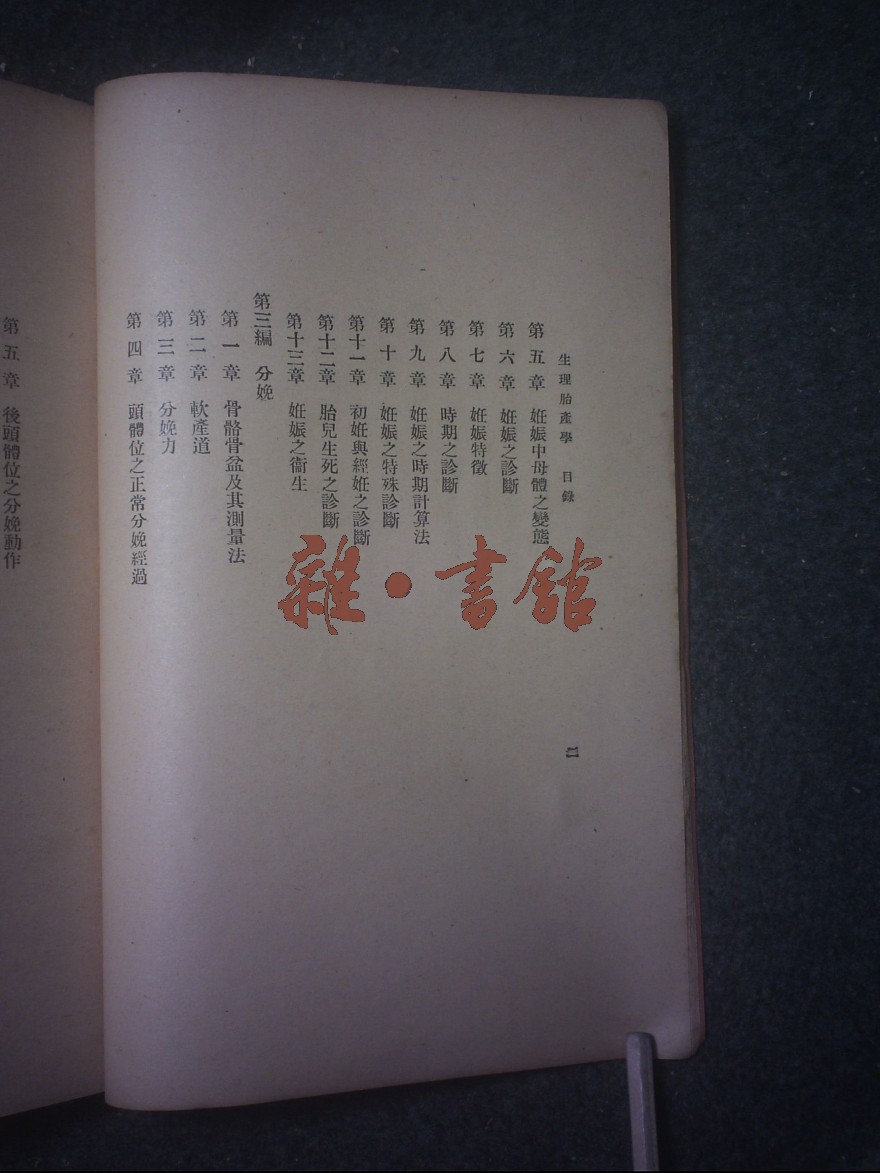 生理胎產學 目錄
二
第五章 妊娠中母體之變態
第六章 妊娠之診斷
第七章 妊娠特徵
第八章 時期之診斷
第九章 妊娠之時期計算法
第十章 妊娠之特殊診斷
第十一章 初妊與經妊之診斷
第十二章 胎兒生死之診斷
第十三章 妊娠之衞生
第三編 分娩
第一章 骨骼骨盆及其測量法
第二章 軟產道
第三章 分娩力
第四章 頭體位之正常分娩經過
第五章 後頭體位之分娩動作
雜·書館